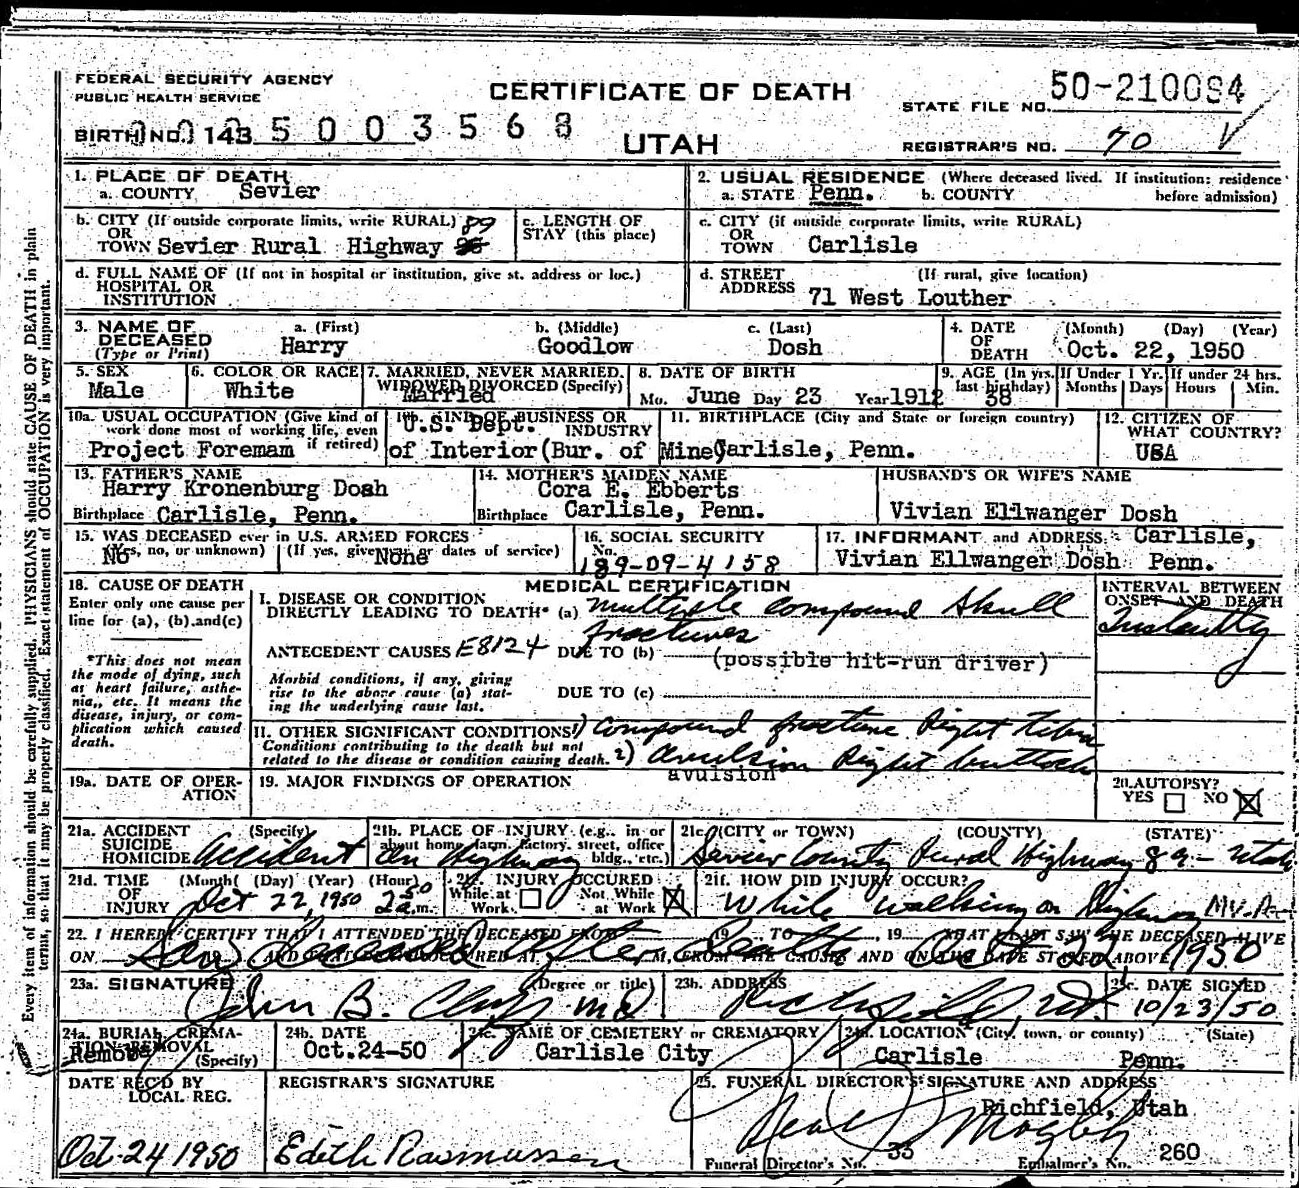 FEDERAL SECURITY AGENCY
PUBLIC HEALTH SERVICE
CERTIFICATE OF DEATH
STATE FILE NO. 50-210094
BIRTH NO. 143 5003568
UTAH
REGISTRAR'S NO. 70
1. PLACE OF DEATH
a. COUNTY Sevier
2. USUAL RESIDENCE (Where deceased lived. If institution: residence before admission)
a. STATE Penn. b. COUNTY
b. CITY (If outside corporate limits, write RURAL) 89
OR
TOWN Sevier Rural Highway
c. LENGTH OF
STAY (this place)
c. CITY (if outside corporate limits, write RURAL)
OR
TOWN Carlisle
d. FULL NAME OF (If not in hospital or institution, give st. address or loc.)
HOSPITAL OR
INSTITUTION
d. STREET (If rural, give location)
ADDRESS
71 West Louther
3. NAME OF DECEASED (Type or Print)
a. (First) b. (Middle) c. (Last)
Harry Goodlow Dosh
4. DATE OF DEATH (Month) (Day) (Year)
Oct. 22, 1950
5. SEX
Male
6. COLOR OR RACE
White
7. MARRIED, NEVER MARRIED, WIDOWED DIVORCED (Specify)
Married
8. DATE OF BIRTH
Mo. June Day 23 Year 1912
9. AGE (In yrs. last birthday)
38
If Under 1 Yr.
Months Days
If under 24 hrs.
Hours Min.
10a. USUAL OCCUPATION (Give kind of work done most of working life, even if retired)
Project Foreman
10b. KIND OF BUSINESS OR INDUSTRY
U.S. Dept.
of Interior(Bur. of Mine
11. BIRTHPLACE (City and State or foreign country)
Carlisle, Penn.
12. CITIZEN OF WHAT COUNTRY?
USA
13. FATHER'S NAME
Harry Kronenburg Dosh
Birthplace Carlisle, Penn.
14. MOTHER'S MAIDEN NAME
Cora E. Ebberts
Birthplace Carlisle, Penn.
HUSBAND'S OR WIFE'S NAME
Vivian Ellwanger Dosh
15. WAS DECEASED ever in U.S. ARMED FORCES
(Yes, no, or unknown) (If yes, give war or dates of service)
No None
16. SOCIAL SECURITY
No. 189-09-4158
17. INFORMANT and ADDRESS Carlisle,
Vivian Ellwanger Dosh Penn.
18. CAUSE OF DEATH
Enter only one cause per line for (a), (b), and (c)
*This does not mean the mode of dying, such as heart failure, asthenia, etc. It means the disease, injury, or complication which caused death.
MEDICAL CERTIFICATION
I. DISEASE OR CONDITION
DIRECTLY LEADING TO DEATH* (a) multiple compound skull
fractures
ANTECEDENT CAUSES E8124 DUE TO (b)
(possible hit-run driver)
Morbid conditions, if any, giving rise to the above cause (a) stating the underlying cause last.
DUE TO (c)
II. OTHER SIGNIFICANT CONDITIONS 1) Compound fracture Right Tibia
Conditions contributing to the death but not related to the disease or condition causing death. 2) avulsion Right buttock
avulsion
INTERVAL BETWEEN ONSET AND DEATH
Instantly
19a. DATE OF OPERATION
19. MAJOR FINDINGS OF OPERATION
20. AUTOPSY?
YES NO X
21a. ACCIDENT SUICIDE HOMICIDE (Specify)
Accident
21b. PLACE OF INJURY (e.g., in or about home, farm, factory, street, office bldg., etc.)
on Highway
21c. (CITY or TOWN) (COUNTY) (STATE)
Sevier County Rural Highway 89 - Utah
21d. TIME OF INJURY (Month) (Day) (Year) (Hour)
Oct 22, 1950 2:50 a.m.
21e. INJURY OCCURED
While at Work Not While at Work X
21f. HOW DID INJURY OCCUR?
While walking on Highway
22. I HEREBY CERTIFY THAT I ATTENDED THE DECEASED FROM 19 TO , 19 THAT I LAST SAW THE DECEASED ALIVE
ON AND THAT DEATH OCCURRED AT M, FROM THE CAUSES AND ON THE DATE STATED ABOVE
Saw deceased after death Oct 22, 1950
23a. SIGNATURE (Degree or title)
John B. MD
23b. ADDRESS
Richfield, Ut.
23c. DATE SIGNED
10/23/50
24a. BURIAL, CREMATION, REMOVAL (Specify)
Removal
24b. DATE
Oct.24-50
24c. NAME OF CEMETERY or CREMATORY
Carlisle City
24d. LOCATION (City, town, or county) (State)
Carlisle Penn.
DATE REC'D BY LOCAL REG.
Oct-24 1950
REGISTRAR'S SIGNATURE
Edith Rasmussen
25. FUNERAL DIRECTOR'S SIGNATURE AND ADDRESS
Richfield, Utah
Neal Magleby
Funeral Director's No. 35 Embalmer's No. 260
Every item of information should be carefully supplied. PHYSICIANS should state CAUSE OF DEATH in plain
terms, so that it may be properly classified. Exact statement of OCCUPATION is very important.